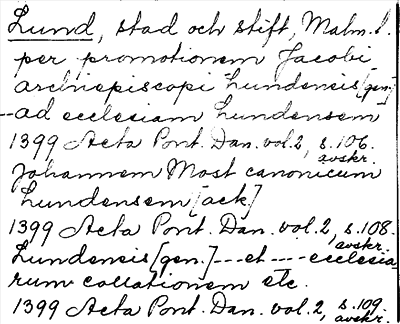 Lund, stad och stift, Malm. l.
per promotionem Jacobi
archiepiscopi Lundensis [gen.]
--ad ecclesiam Lundensem
1399 Acta Pont. Dan. vol. 2, s. 106.
avskr.
Johannem Most canonicum
Lundensem [ack.]
1399 Acta Pont. Dan. vol. 2, s. 108.
avskr.
Lundensis [gen.] --- et ---- ecclesia-
rum collationem etc.
1399 Acta Pont. Dan. vol. 2, s. 109.
avskr.